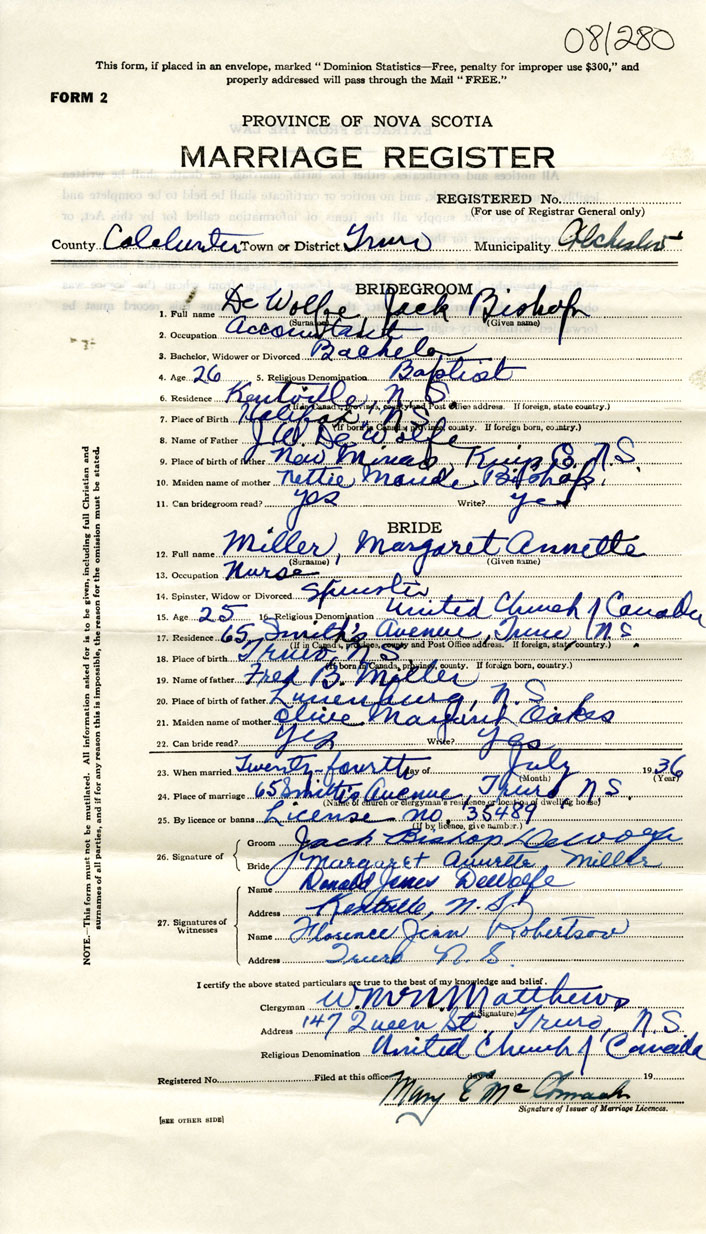 08/280
This form, if placed in an envelope, marked "Dominion Statistics—Free, penalty for improper use $300," and
properly addressed will pass through the Mail "FREE."
FORM 2
PROVINCE OF NOVA SCOTIA
MARRIAGE REGISTER
REGISTERED No.
(For use of Registrar General only)
County Colchester Town or District Truro Municipality Colchester
BRIDEGROOM
1. Full name De Wolfe Jack Bishop
(Surname) (Given name)
2. Occupation Accountant
3. Bachelor, Widower or Divorced Bachelor
4. Age 26 5. Religious Denomination Baptist
6. Residence Kentville, N.S.
(If in Canada, province, county and Post Office address. If foreign, state country.)
7. Place of Birth Halifax, N.S.
(If born in Canada, province, county. If foreign born, country.)
8. Name of Father J.W. De Wolfe
9. Place of birth of father New Minas, Kings Co. N.S.
10. Maiden name of mother Nettie Maude Bishop
11. Can bridegroom read? yes Write? yes
BRIDE
12. Full name Miller, Margaret Annette
(Surname) (Given name)
13. Occupation Nurse
14. Spinster, Widow or Divorced Spinster
15. Age 25 16. Religious Denomination United Church of Canada
17. Residence 65 Smith's Avenue, Truro, N.S.
(If in Canada, province, county and Post Office address. If foreign, state country.)
18. Place of birth Truro N.S.
(If born in Canada, province, county. If foreign born, country.)
19. Name of father Fred B. Miller
20. Place of birth of father Lunenburg, N.S.
21. Maiden name of mother Olive Margaret Oakes
22. Can bride read? Yes Write? Yes
23. When married Twenty-fourth day of July 1936
(Month) (Year)
24. Place of marriage 65 Smith's Avenue, Truro N.S.
(Name of church or clergyman's residence or location of dwelling house)
25. By licence or banns License no. 35489
(If by licence, give number.)
26. Signature of { Groom Jack Bishop DeWolfe
Bride Margaret Annette Miller
27. Signatures of Witnesses { Name Donald Jones DeWolfe
Address Kentville, N.S.
Name Florence Jean Robertson
Address Truro N.S.
I certify the above stated particulars are true to the best of my knowledge and belief.
Clergyman Matthews
(Signature)
Address 147 Queen St. Truro, N.S.
Religious Denomination United Church of Canada
Registered No. Filed at this office day of 19
Mary E McCormack
Signature of Issuer of Marriage Licences.
[SEE OTHER SIDE]
NOTE.—This form must not be mutilated. All information asked for is to be given, including full Christian and
surnames of all parties, and if for any reason this is impossible, the reason for the omission must be stated.